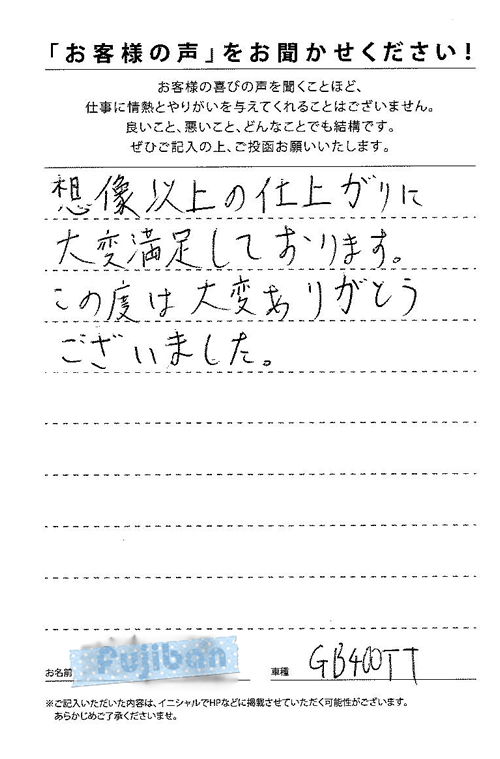 「お客様の声」をお聞かせください!
お客様の喜びの声を聞くことほど、
仕事に情熱とやりがいを与えてくれることはございません。
良いこと、悪いこと、どんなことでも結構です。
ぜひご記入の上、ご投函お願いいたします。
想像以上の仕上がりに
大変満足しております。
この度は大変ありがとう
ございました。
お名前 Fujiban 車種 GB400TT
※ご記入いただいた内容は、イニシャルでHPなどに掲載させていただく可能性がございます。
あらかじめご了承くださいませ。